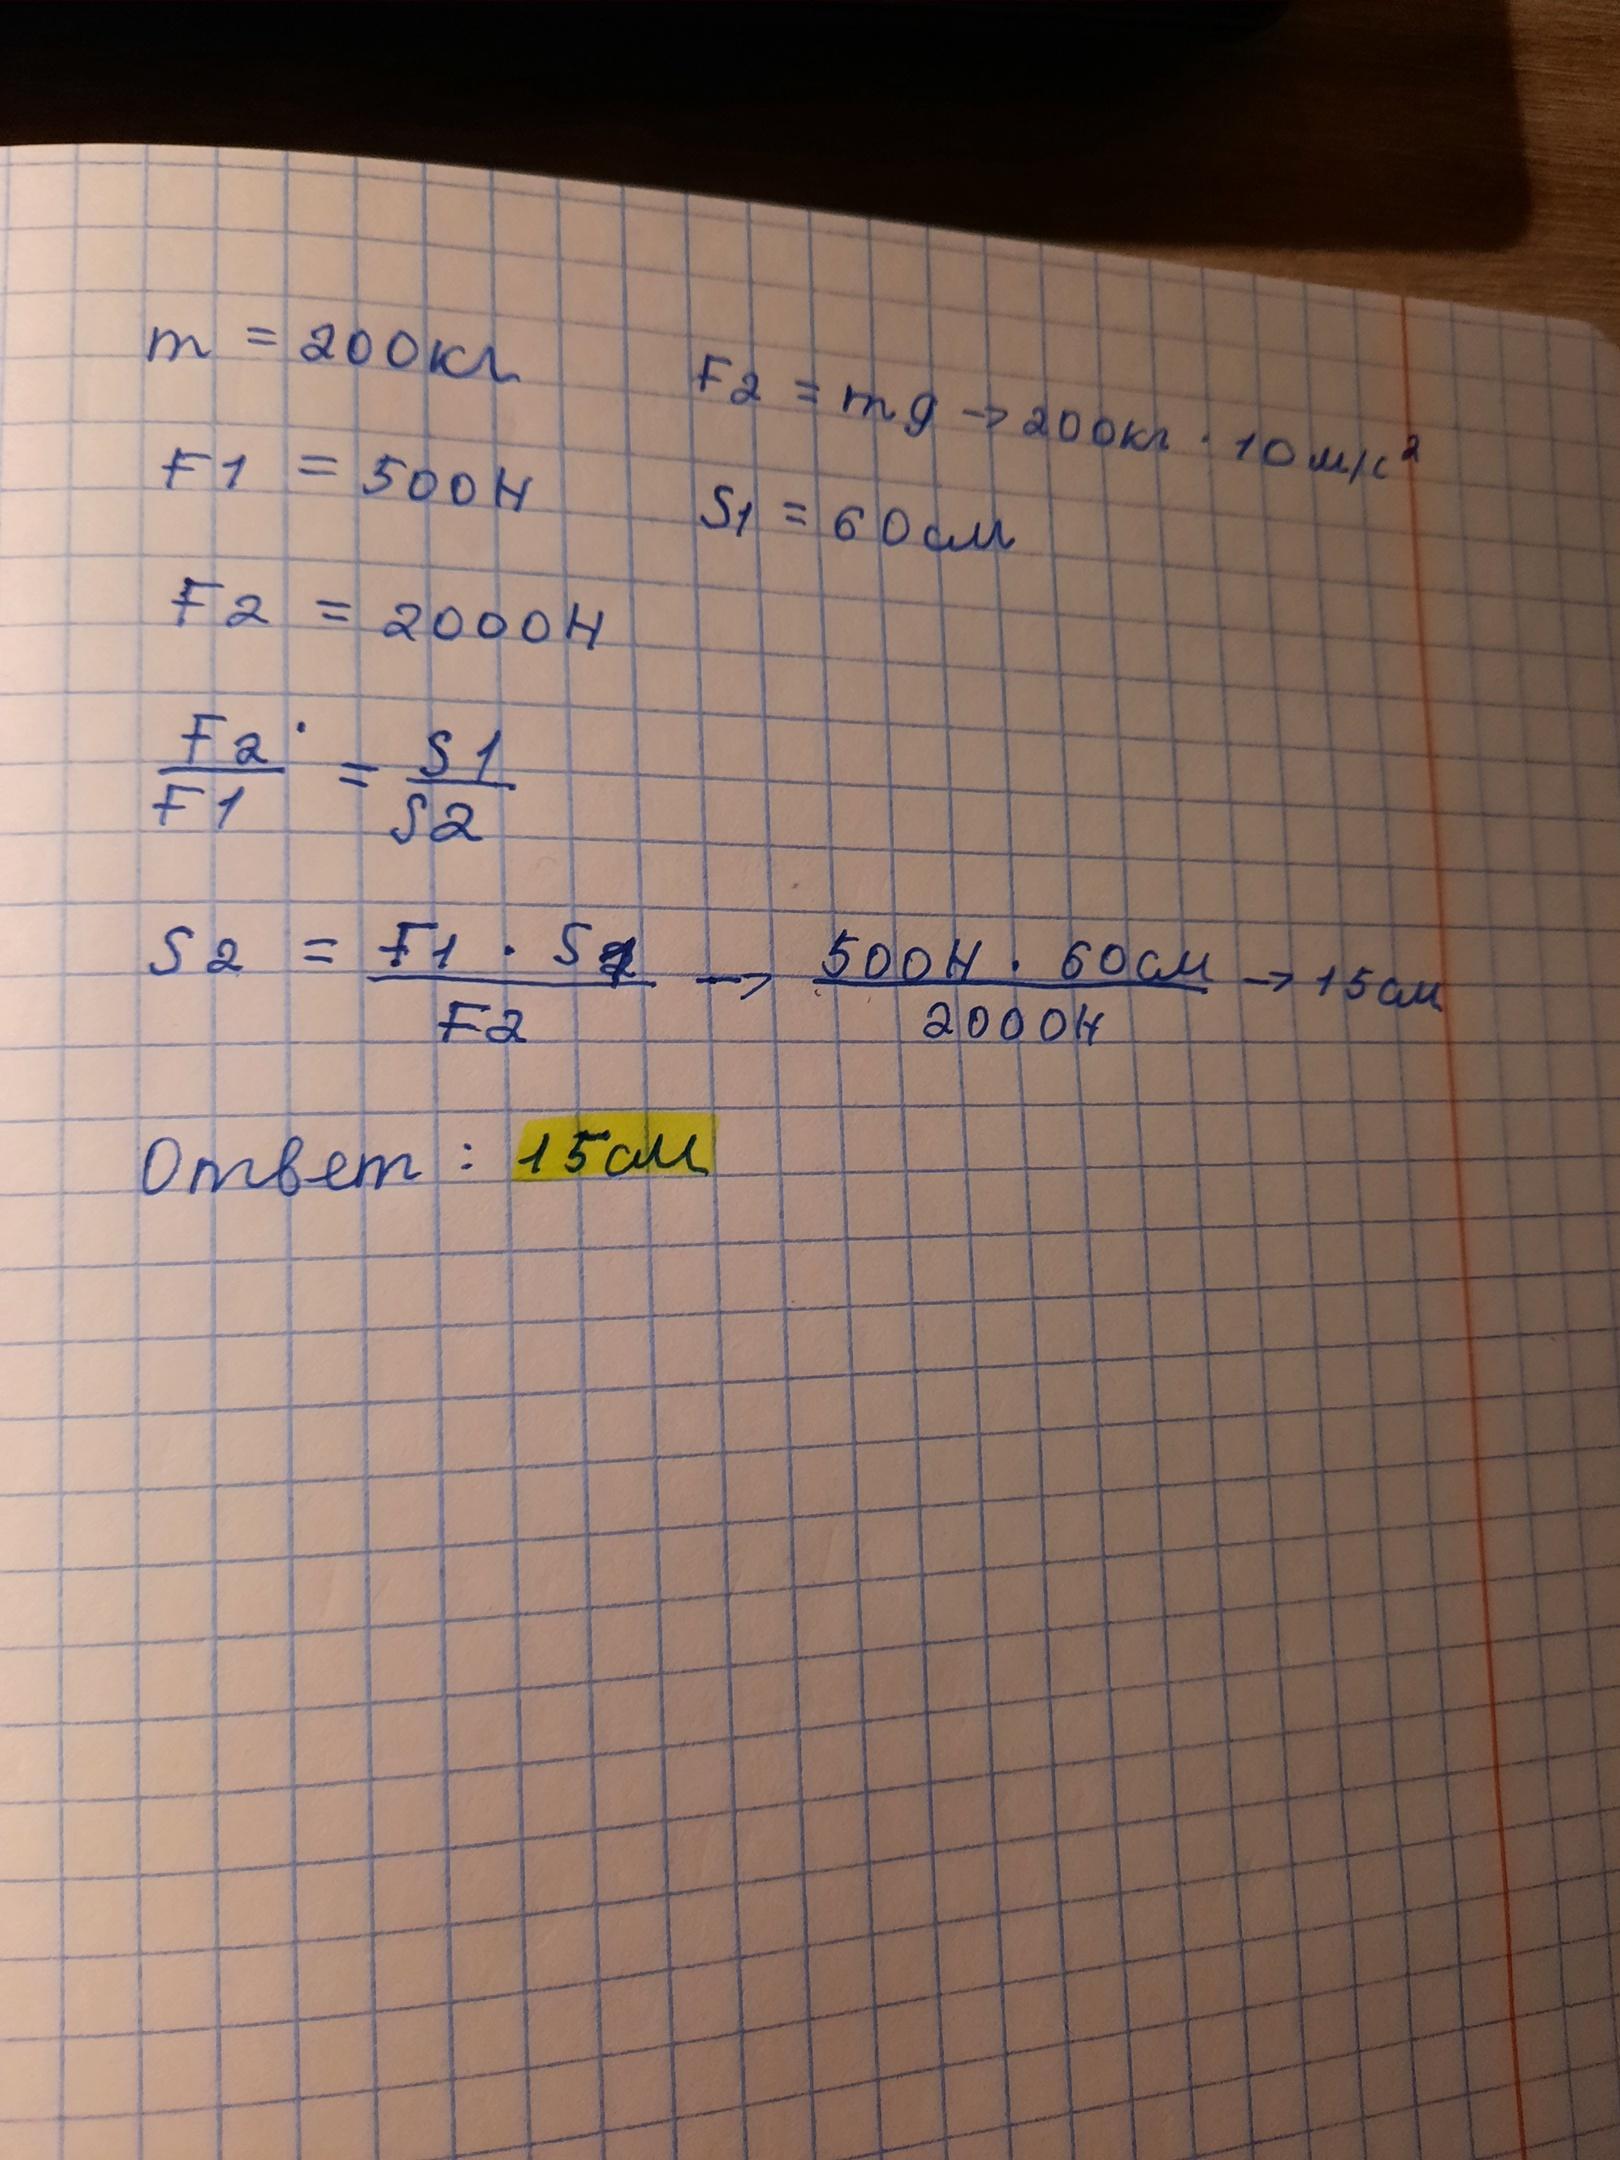 m = 200кг
F2 = mg → 200кг · 10м/с²
F1 = 500Н
S1 = 60см
F2 = 2000Н
F2/F1 = S1/S2
S2 = F1 · S1/F2 → 500Н · 60см/2000Н → 15см
Ответ : 15см